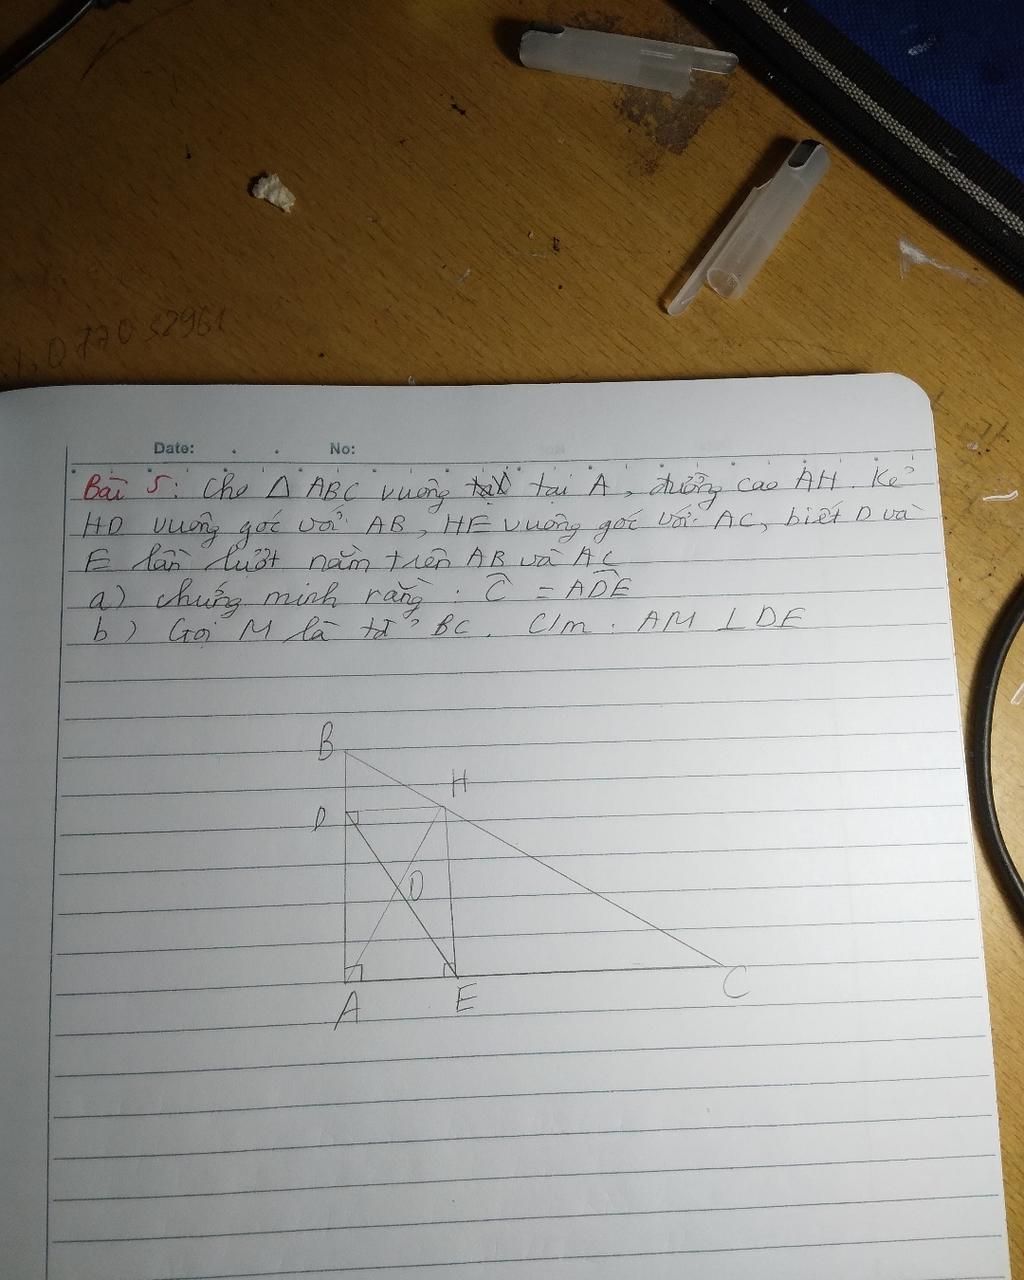 Date: . . No:
Bài 5: Cho △ ABC vuông tại A, đường cao AH. Kẻ
HD vuông góc với AB, HE vuông góc với AC, biết D và
E lần lượt nằm trên AB và AC
a) chứng minh rằng: Ĉ = AD̂E
b) Gọi M là tđ BC. C/m: AM ⊥ DE
B
H
D
O
A
E
C